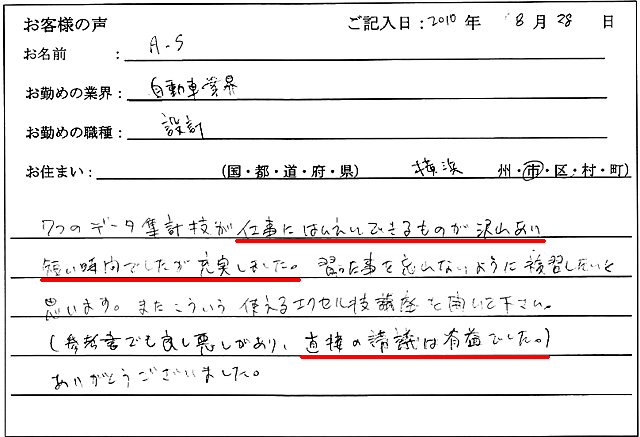 お客様の声 ご記入日:2010年 8月28日
お名前 : A-S
お勤めの業界: 自動車業界
お勤めの職種: 設計
お住まい: (国・都・道・府・県) 横浜 州・市・区・村・町)
7つのデータ集計技が仕事に できるものが沢山あり
短い時間でしたが充実しました。習った事を忘れないように復習したいと
思います。またこういう使えるエクセル技講座を開いて下さい。
(参考書でも良し悪しがあり、直接の講議は有益でした。)
ありがとうございました。